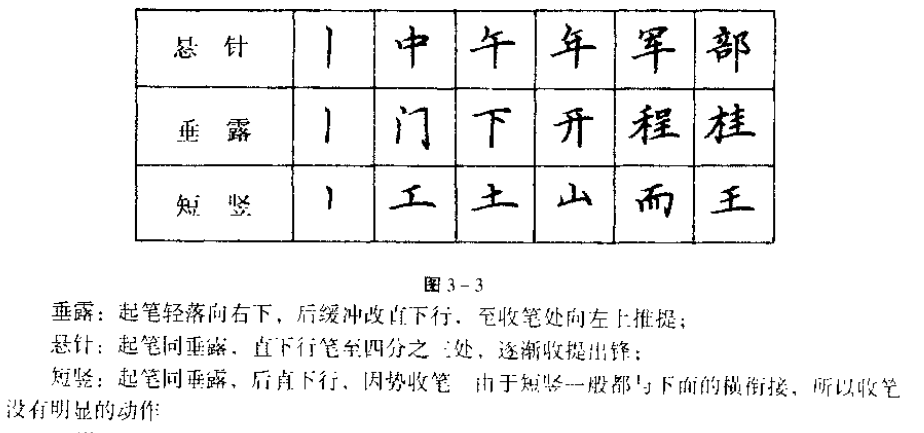 悬 针 丨 中 午 年 军 部
垂 露 丨 门 下 开 程 桂
短 竖 丨 工 土 山 而 王
图 3-3
垂露：起笔轻落向右下，后缓冲改直下行，至收笔处向左上推提；
悬针：起笔同垂露，直下行笔至四分之三处，逐渐收提出锋；
短竖：起笔同垂露，后直下行，因势收笔 由于短竖一般都与下面的横衔接，所以收笔
没有明显的动作